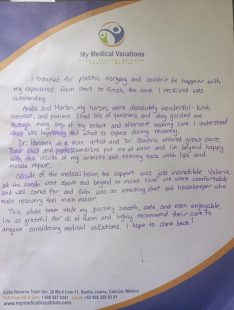 My Medical Vacations
I traveled for plastic surgery and couldn't be happier with
my experience. From start to finish the care I received was
outstanding.
Anita and Marlen, my nurses were absolutely wonderful - kind,
attentive, and patient. I had lots of questions and they guided me
through every step of my before and aftercare, making sure I understood
what was happening and what to expect during recovery.
Dr. is a true artist and Dr. offered great care.
Their skill and professionalism put me at ease and I'm beyond happy
with the results of my and tummy tuck with lipo and
muscle repair.
Outside of the medical team the support was just incredible. Valeria
at the went above and beyond to make sure we were comfortable
and well cared for, and was an amazing chef and housekeeper who
made recovering feel much easier.
This whole team made my journey smooth, safe, and even enjoyable.
I'm so grateful for all of them and highly recommend their care to
anyone considering medical vacations. I hope to come back!
Calle Retorno Tejon Sm. 20 Mz.4 Lote 31, Benito Juarez, Cancun, Mexico